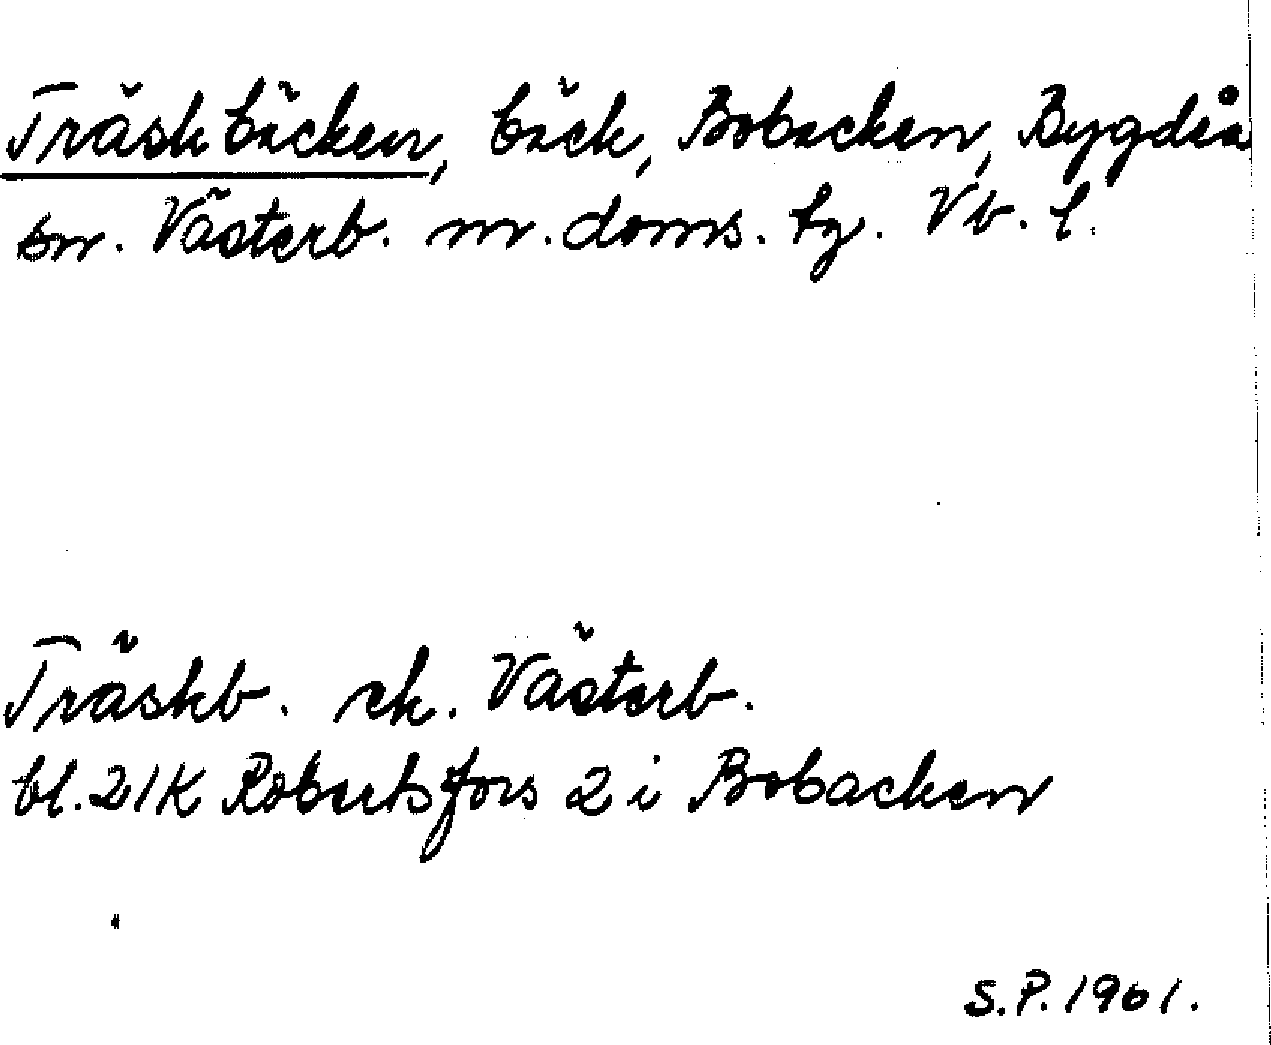 Träskbäcken, bäck, Bobacken, Bygdeå
sn. Västerb. n. doms. tg. Vb. l.
Träskb. ek. Västerb.
bl. 21K Robertsfors 2 i Bobacken
S.P. 1961.